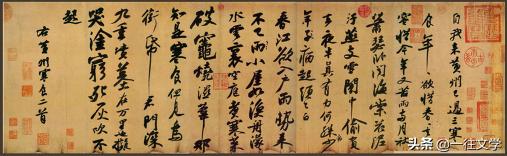 自我來黄州已過三寒
食年年欲惜春春去不
容惜今年又苦雨兩月秋
蕭瑟卧聞海棠花泥
汙燕支雪闇中偷負
去夜半真有力何殊少
年子病起頭已白
春江欲入户雨勢来
不已雨小屋如漁舟濛濛
水雲裏空庖煮寒菜
破竈燒濕葦那
知是寒食但見烏
銜帋君門深
九重墳墓在万里也擬
哭塗窮死灰吹不
起
右黄州寒食二首
头条 @一往文学